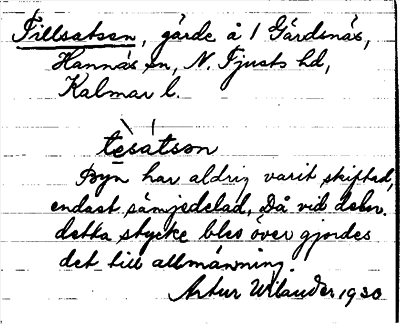 Tillsatsen, gärde å 1 Gärdsnäs,
Hannäs sn, N. Tjusts hd,
Kalmar l.
tesatson
Byn har aldrig varit skiftad,
endast sämjedelad. Då vid deln.
detta stycke blev över gjordes
det till allmänning.
Artur Wilander 1930